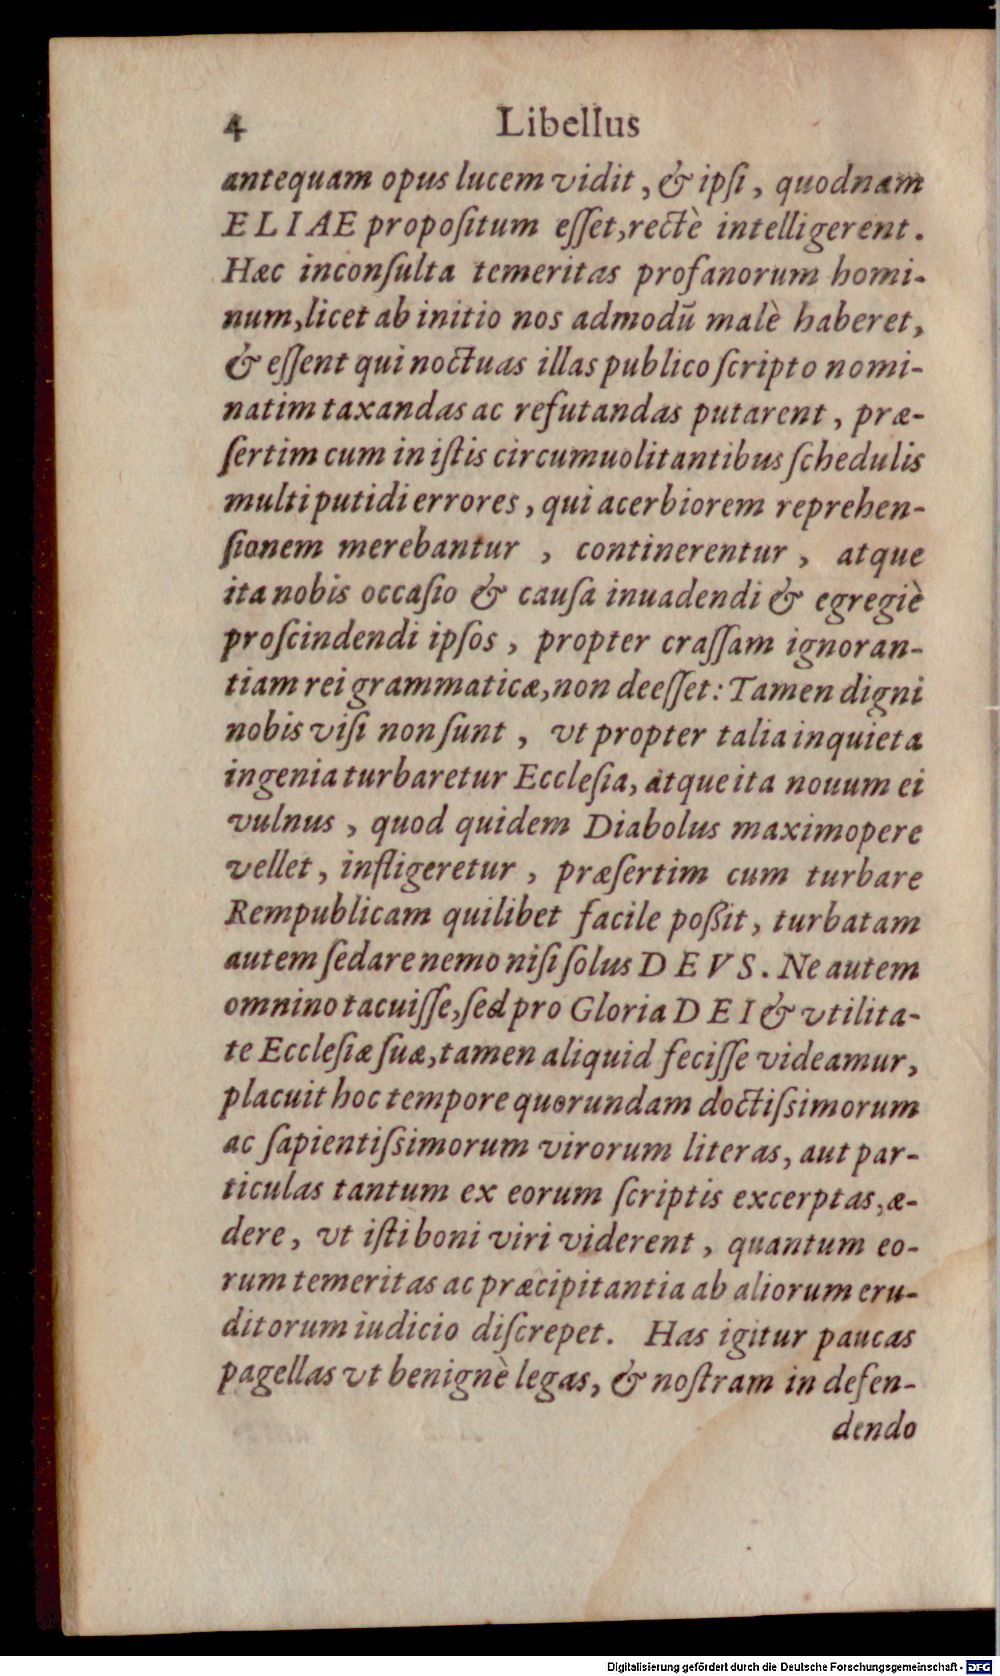 4 Libellus
antequam opus lucem vidit, & ipſi, quodnam
ELIAE propoſitum eſſet, rectè intelligerent.
Hæc inconſulta temeritas profanorum homi-
num, licet ab initio nos admodū malè haberet,
& eſſent qui noctuas illas publico ſcripto nomi-
natim taxandas ac refutandas putarent, præ-
ſertim cum in iſtis circumuolitantibus ſchedulis
multi putidi errores, qui acerbiorem reprehen-
ſionem merebantur, continerentur, atque
ita nobis occaſio & cauſa inuadendi & egregiè
proſcindendi ipſos, propter craſſam ignoran-
tiam rei grammaticæ, non deeſſet: Tamen digni
nobis viſi non ſunt, vt propter talia inquieta
ingenia turbaretur Eccleſia, atque ita nouum ei
vulnus, quod quidem Diabolus maximopere
vellet, infligeretur, præſertim cum turbare
Rempublicam quilibet facile poßit, turbatam
autem ſedare nemo niſi ſolus DEVS. Ne autem
omnino tacuiſſe, ſed pro Gloria DEI & vtilita-
te Eccleſiæ ſuæ, tamen aliquid feciſſe videamur,
placuit hoc tempore quorundam doctiſsimorum
ac ſapientiſsimorum virorum literas, aut par-
ticulas tantum ex eorum ſcriptis excerptas, æ-
dere, vt iſti boni viri viderent, quantum eo-
rum temeritas ac præcipitantia ab aliorum eru-
ditorum iudicio diſcrepet. Has igitur paucas
pagellas vt benignè legas, & noſtram in defen-
dendo
Digitalisierung gefördert durch die Deutsche Forschungsgemeinschaft - DFG